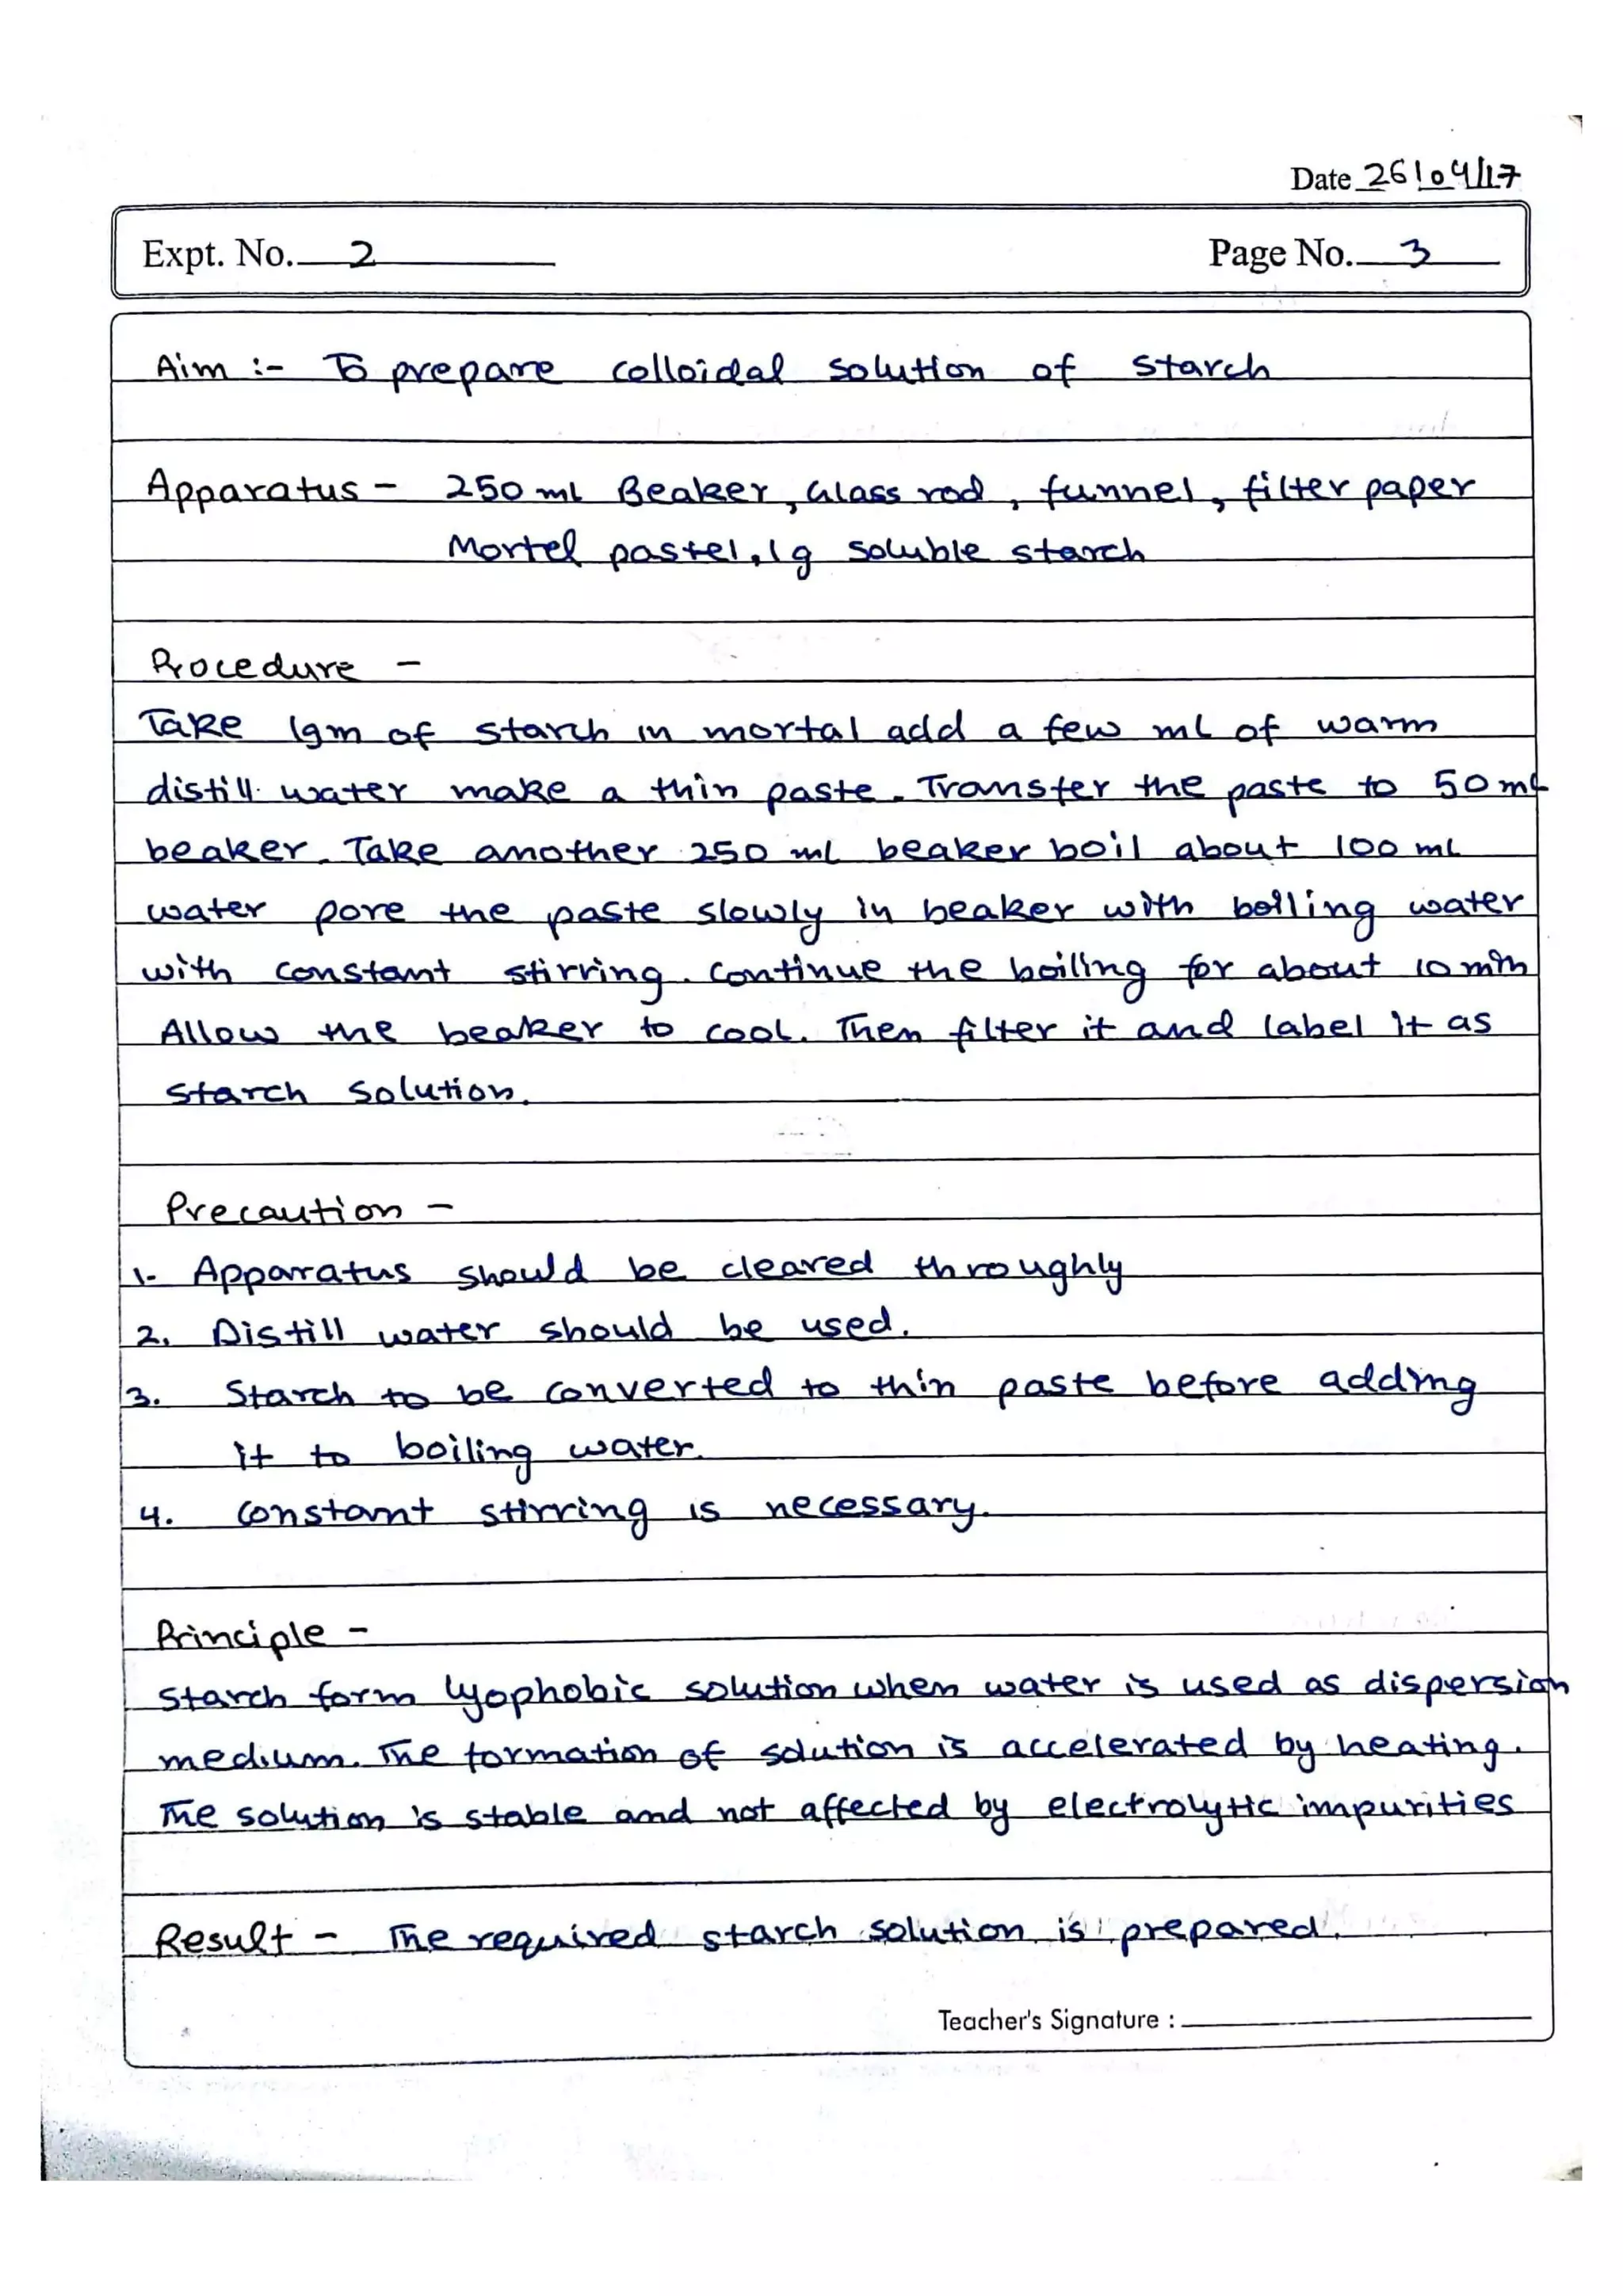 Date 26/04/17
Expt. No. 2
Page No. 3
Aim :- To prepare colloidal solution of starch
Apparatus - 250 ml Beaker, Glass rod, funnel, filter paper
Mortel pastel, 1g soluble starch
Procedure -
Take 1gm of starch in mortal add a few ml of warm
distill. water make a thin paste. Transfer the paste to 50 ml
beaker. Take another 250 ml beaker boil about 100 ml
water pore the paste slowly in beaker with boiling water
with constant stirring. Continue the boiling for about 10 min
Allow the beaker to cool. Then filter it and label it as
starch solution.
Precaution -
1. Apparatus should be cleared throughly
2. Distill water should be used.
3. Starch to be converted to thin paste before adding
it to boiling water.
4. Constant stirring is necessary.
Principle -
Starch form lyophobic solution when water is used as dispersion
medium. The formation of solution is accelerated by heating.
The solution is stable and not affected by electrolytic impurities
Result - The required starch solution is prepared.
Teacher's Signature :